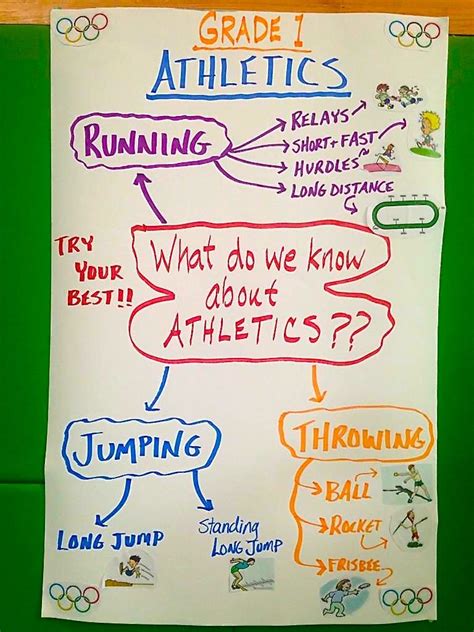 GRADE 1
ATHLETICS
RUNNING
RELAYS
SHORT + FAST
HURDLES
LONG DISTANCE
TRY
YOUR
BEST!!
What do we know
about
ATHLETICS??
JUMPING
LONG JUMP
Standing
LONG JUMP
THROWING
BALL
ROCKET
FRISBEE